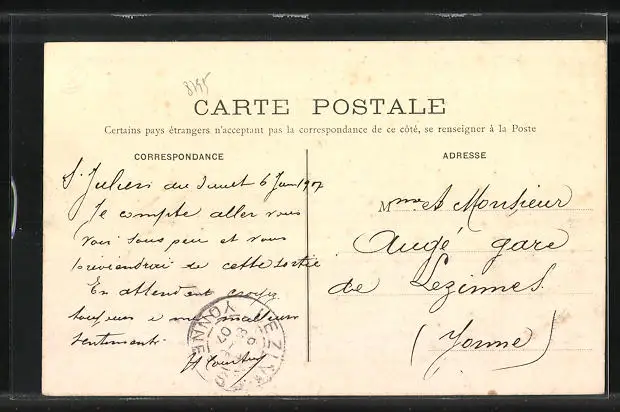 8795
CARTE POSTALE
Certains pays étrangers n'acceptent pas la correspondance de ce côté, se renseigner à la Poste
CORRESPONDANCE
St Julien du Sault 6 Juin 1907
Je compte aller vous
voir sous peu et vous
préviendrai de cette sortie
En attendant croyez
toujours à mes meilleurs
sentiments
ADRESSE
Mme et Monsieur
Augé gare
de Lezinnes
(Yonne)
LEZINNES
YONNE
07